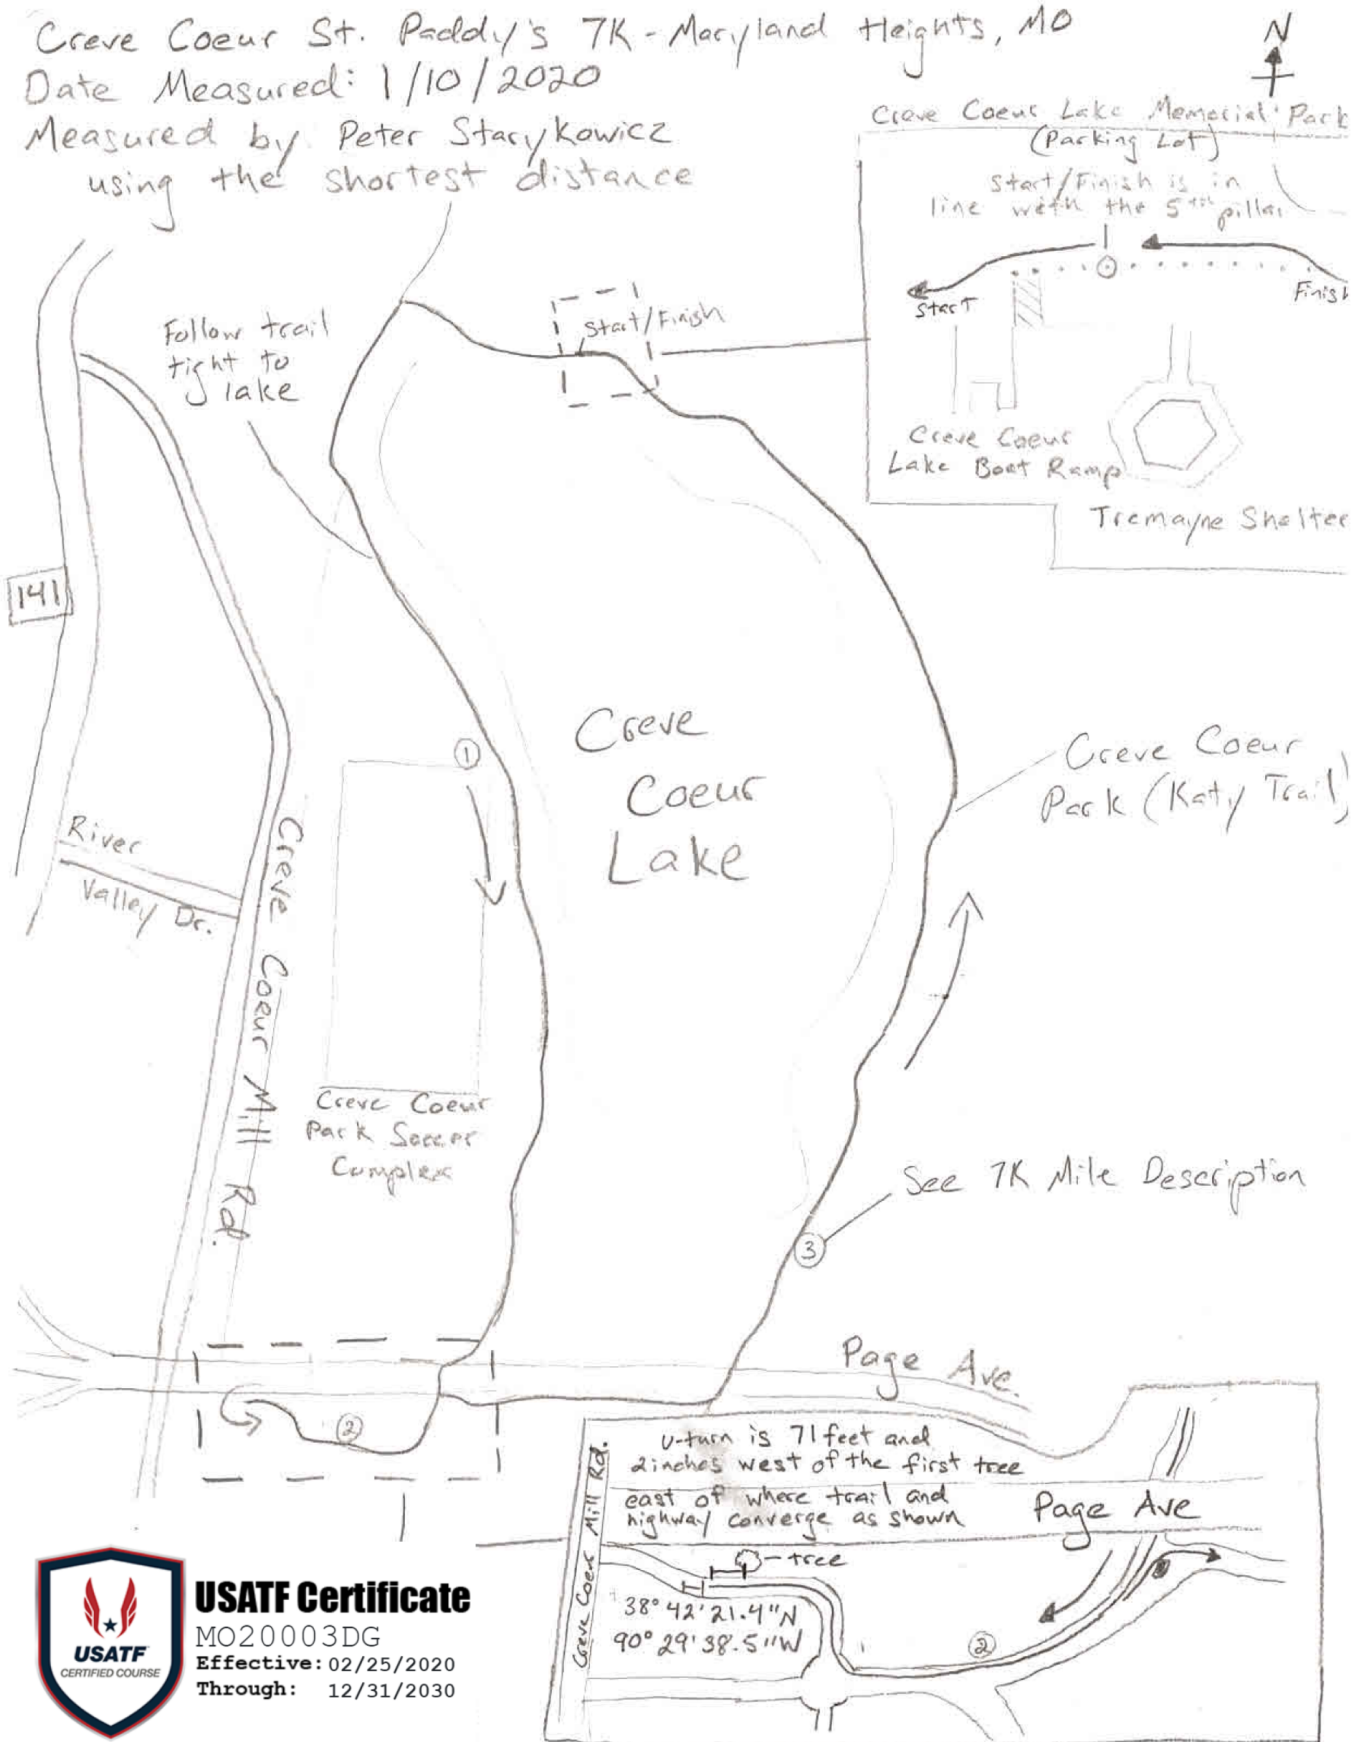 Creve Coeur St. Paddy's 7K - Maryland Heights, MO
Date Measured: 1/10/2020
Measured by Peter Starykowicz
using the shortest distance
N
Creve Coeur Lake Memorial Park
(Parking Lot)
Start/Finish is in
line with the 5th pillar
Start
Finish
Creve Coeur
Lake Boat Ramp
Tremayne Shelter
Follow trail
tight to
lake
Start/Finish
141
1
Creve
Coeur
Lake
Creve Coeur
Park (Katy Trail)
River
Valley Dr.
Creve Coeur Mill Rd.
Creve Coeur
Park Soccer
Complex
See 7K Mile Description
3
Page Ave.
2
U-turn is 71 feet and
2 inches west of the first tree
east of where trail and
highway converge as shown
Page Ave
Creve Coeur Mill Rd.
tree
38° 42' 21.4"N
90° 29' 38.5"W
2
USATF
CERTIFIED COURSE
USATF Certificate
MO20003DG
Effective: 02/25/2020
Through: 12/31/2030